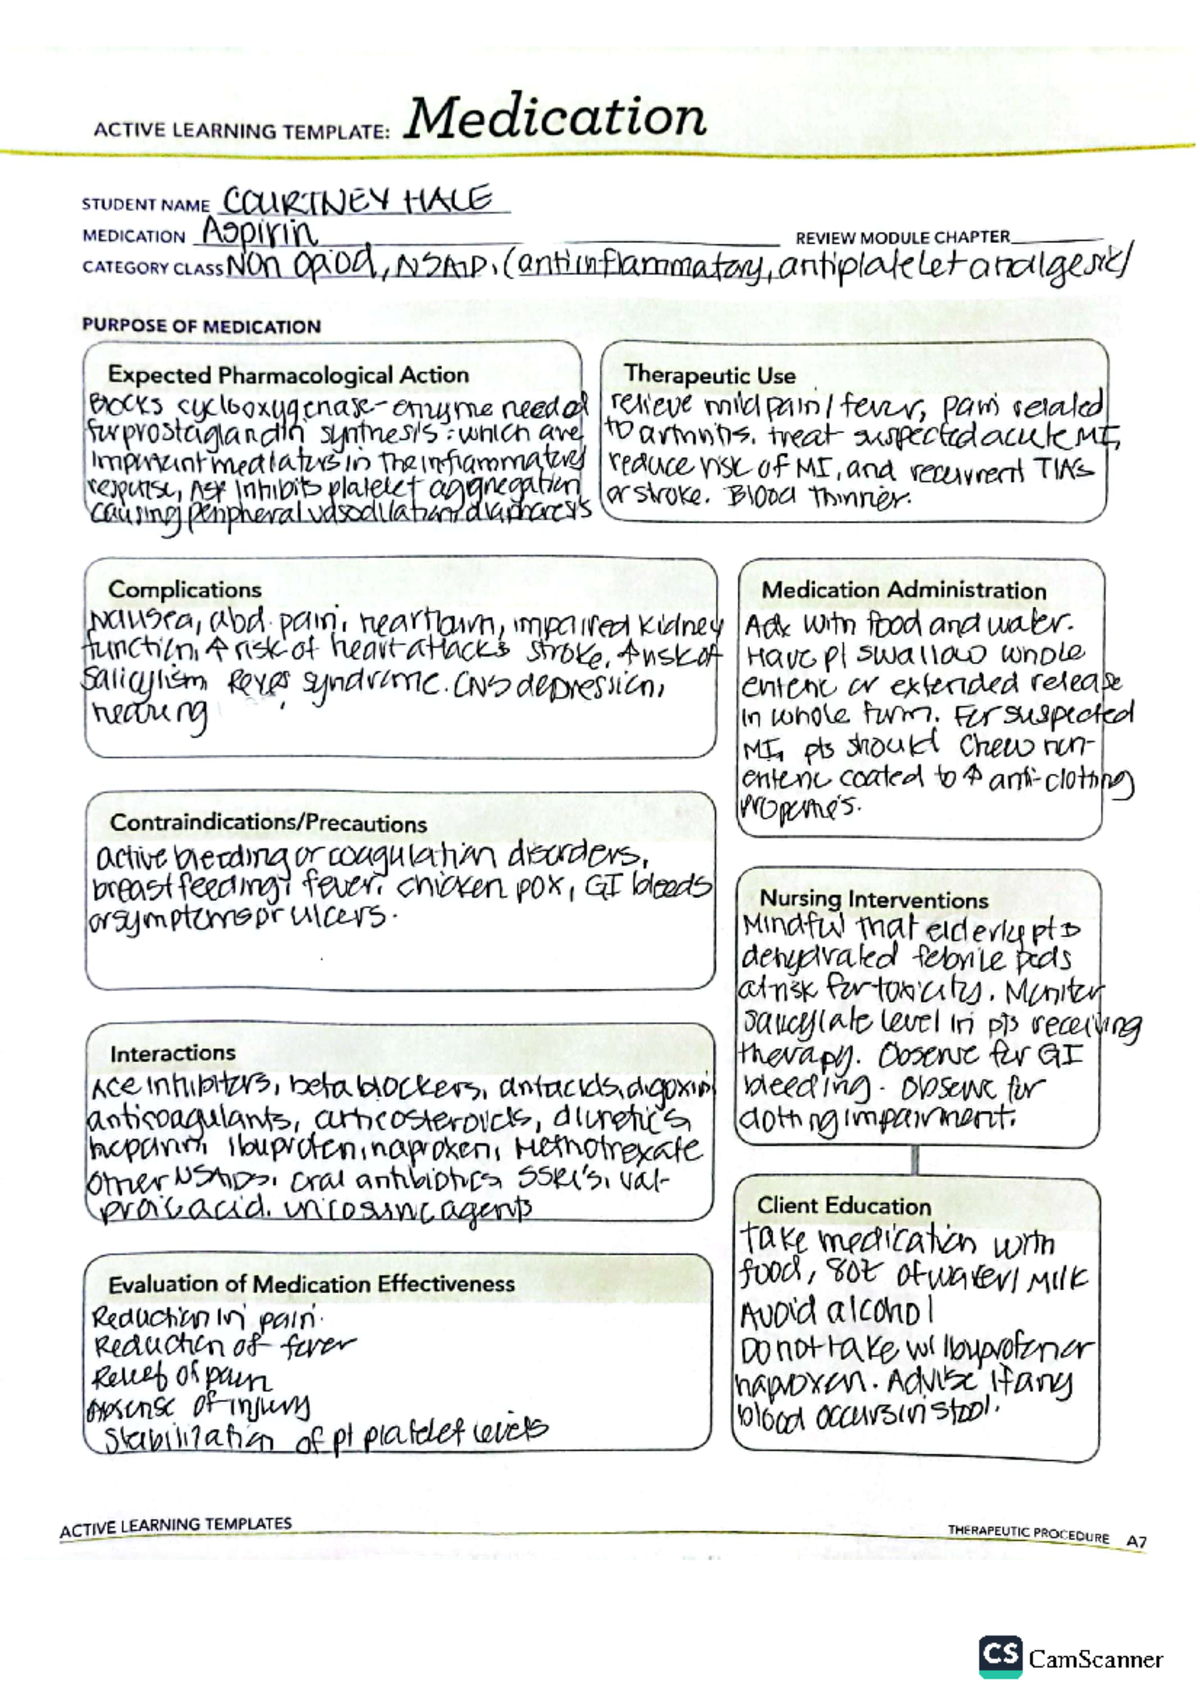 ACTIVE LEARNING TEMPLATE: Medication
STUDENT NAME COURTNEY HALE
MEDICATION Aspirin
REVIEW MODULE CHAPTER
CATEGORY CLASS Non opiod, NSAID, (antiinflammatory, antiplatelet analgesic)
PURPOSE OF MEDICATION
Expected Pharmacological Action
Blocks cyclooxygenase- enzyme needed
for prostaglandin synthesis: which are
important mediators in the inflammatory
response, ASA inhibits platelet aggregation
causing peripheral vasodilation/diaphoresis
Therapeutic Use
relieve mild pain/fever, pain related
to arthritis. treat suspected acute MI,
reduce risk of MI, and recurrent TIAs
or stroke. Blood thinner.
Complications
Nausea, abd. pain, heartburn, impaired kidney
function, ↑ risk of heart attacks stroke, ↑ risk of
Salicylism Reyes syndrome. CNS depression,
hearing
Contraindications/Precautions
active bleeding or coagulation disorders,
breastfeeding, fever, chicken pox, GI bleeds
or symptoms or ulcers.
Interactions
Ace inhibitors, beta blockers, antacids, digoxin
anticoagulants, corticosteroids, diuretics,
heparin, Ibuprofen, naproxen, Methotrexate
other NSAIDs, oral antibiotics SSRI's, val-
proic acid. uricosuric agents
Evaluation of Medication Effectiveness
Reduction in pain.
Reduction of fever
Relief of pain
Absense of injury
Stabilization of pt platelet levels
Medication Administration
Adx with food and water.
Have pt swallow whole
enteric or extended release
in whole form. For suspected
MI, pts should chew non-
enteric coated to ↑ anti-clotting
properties.
Nursing Interventions
Mindful that elderly pts
dehydrated febrile peds
at risk for toxicity. Monitor
salicylate level in pts receiving
therapy. Observe for GI
bleeding. Observe for
clotting impairment.
Client Education
Take medication with
food, 8oz of water/Milk
Avoid alcohol
Do not take w/ Ibuprofen or
naproxen. Advise if any
blood occurs in stool.
ACTIVE LEARNING TEMPLATES
THERAPEUTIC PROCEDURE A7
CS CamScanner